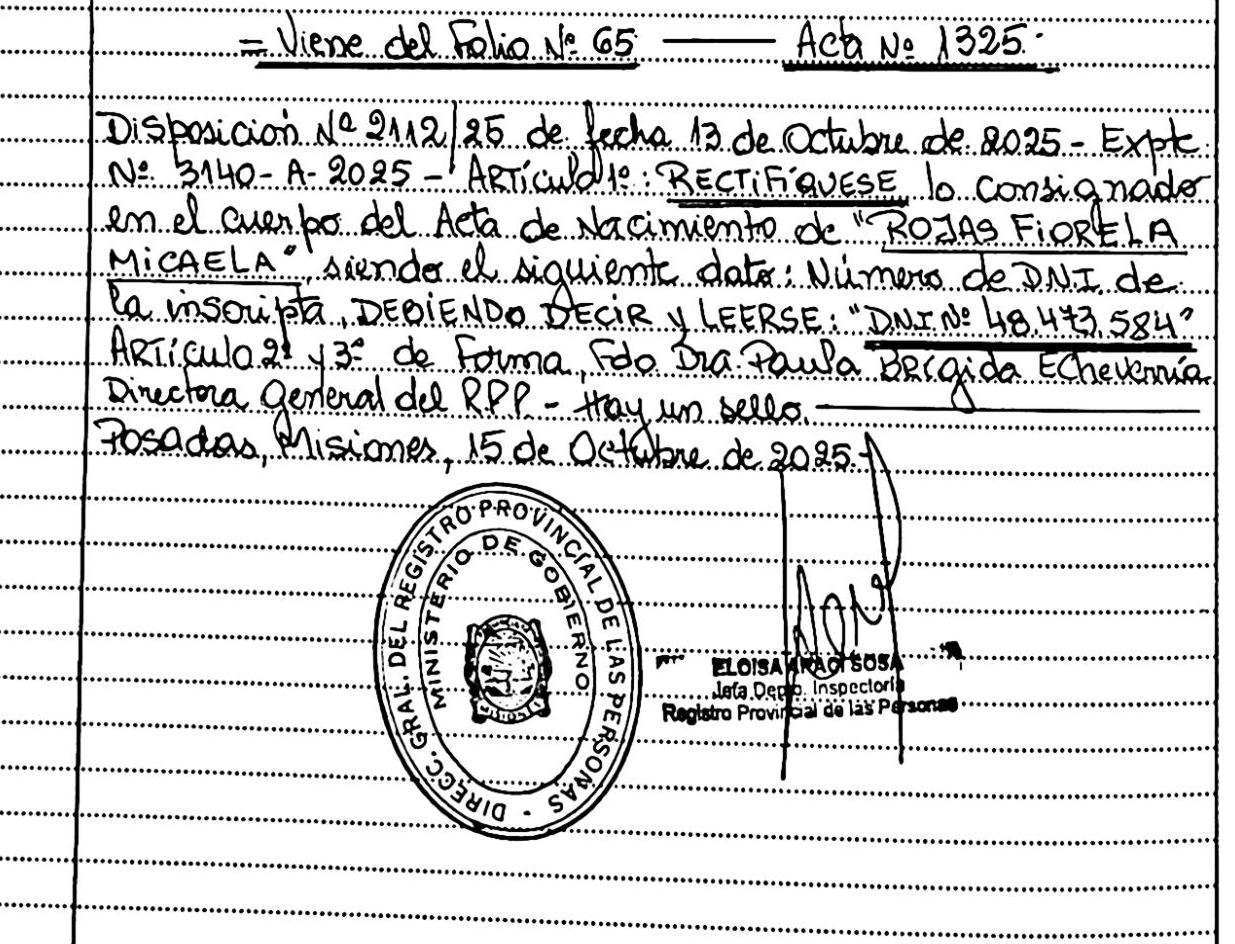 = Viene del Folio Nº 65 ——— Acta Nº 1325.-
Disposición Nº 2112/25 de fecha 13 de Octubre de 2025 - Expte.
Nº 3140-A-2025 - ARTículo 1º: RECTIFÍQUESE lo consignado
en el cuerpo del Acta de Nacimiento de "ROJAS FIORELA
MICAELA", siendo el siguiente dato: Número de D.N.I. de
la inscripta, DEBIENDO DECIR y LEERSE: "DNI Nº 48.473.584"
ARTículo 2º y 3º de Forma, Fdo Dra. Paula BRígida Echeverría
Directora General del RPP - Hay un sello.
Posadas, Misiones, 15 de Octubre de 2025.-
DIRECC. GRAL. DEL REGISTRO PROVINCIAL DE LAS PERSONAS
MINISTERIO DE GOBIERNO
ELOISA SOSA
Jefa Depto. Inspectoría
Registro Provincial de las Personas